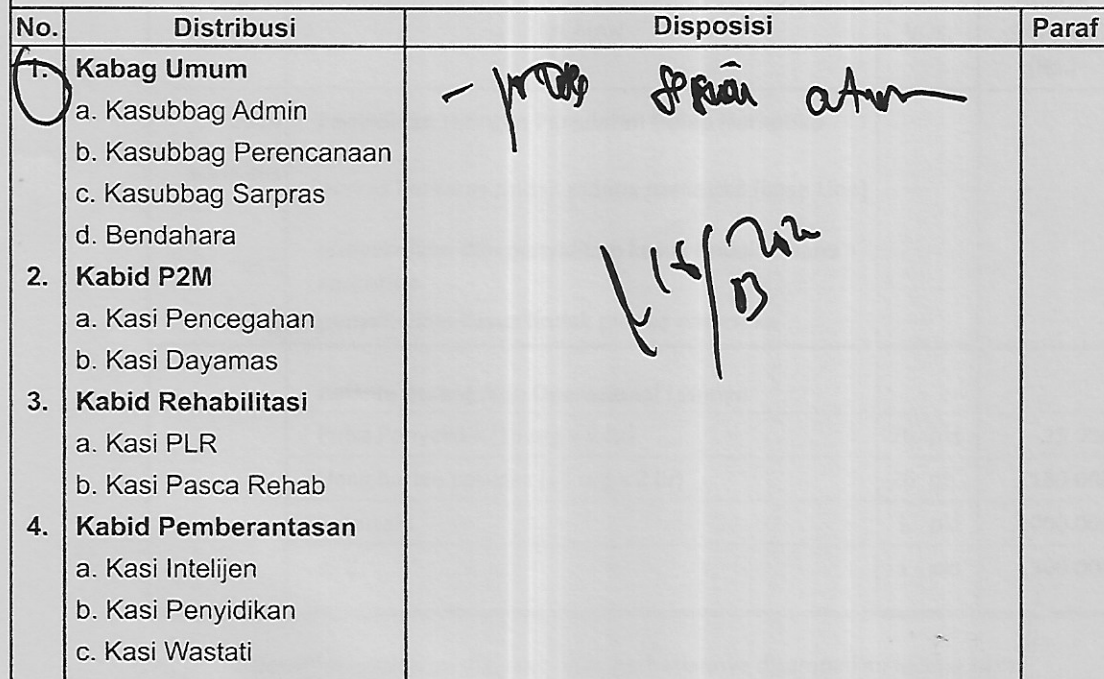 No. Distribusi Disposisi Paraf
1. Kabag Umum
- proses sesuai aturan
a. Kasubbag Admin
b. Kasubbag Perencanaan
c. Kasubbag Sarpras
d. Bendahara
2. Kabid P2M
a. Kasi Pencegahan
b. Kasi Dayamas
3. Kabid Rehabilitasi
a. Kasi PLR
b. Kasi Pasca Rehab
4. Kabid Pemberantasan
a. Kasi Intelijen
b. Kasi Penyidikan
c. Kasi Wastati